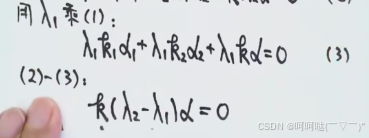 用λ₁乘(1):
λ₁k₁α₁+λ₁k₂α₂+λ₁kα=0 (3)
(2)-(3):
k(λ₂-λ₁)α=0
CSDN @呵呵哒(￣▽￣)"